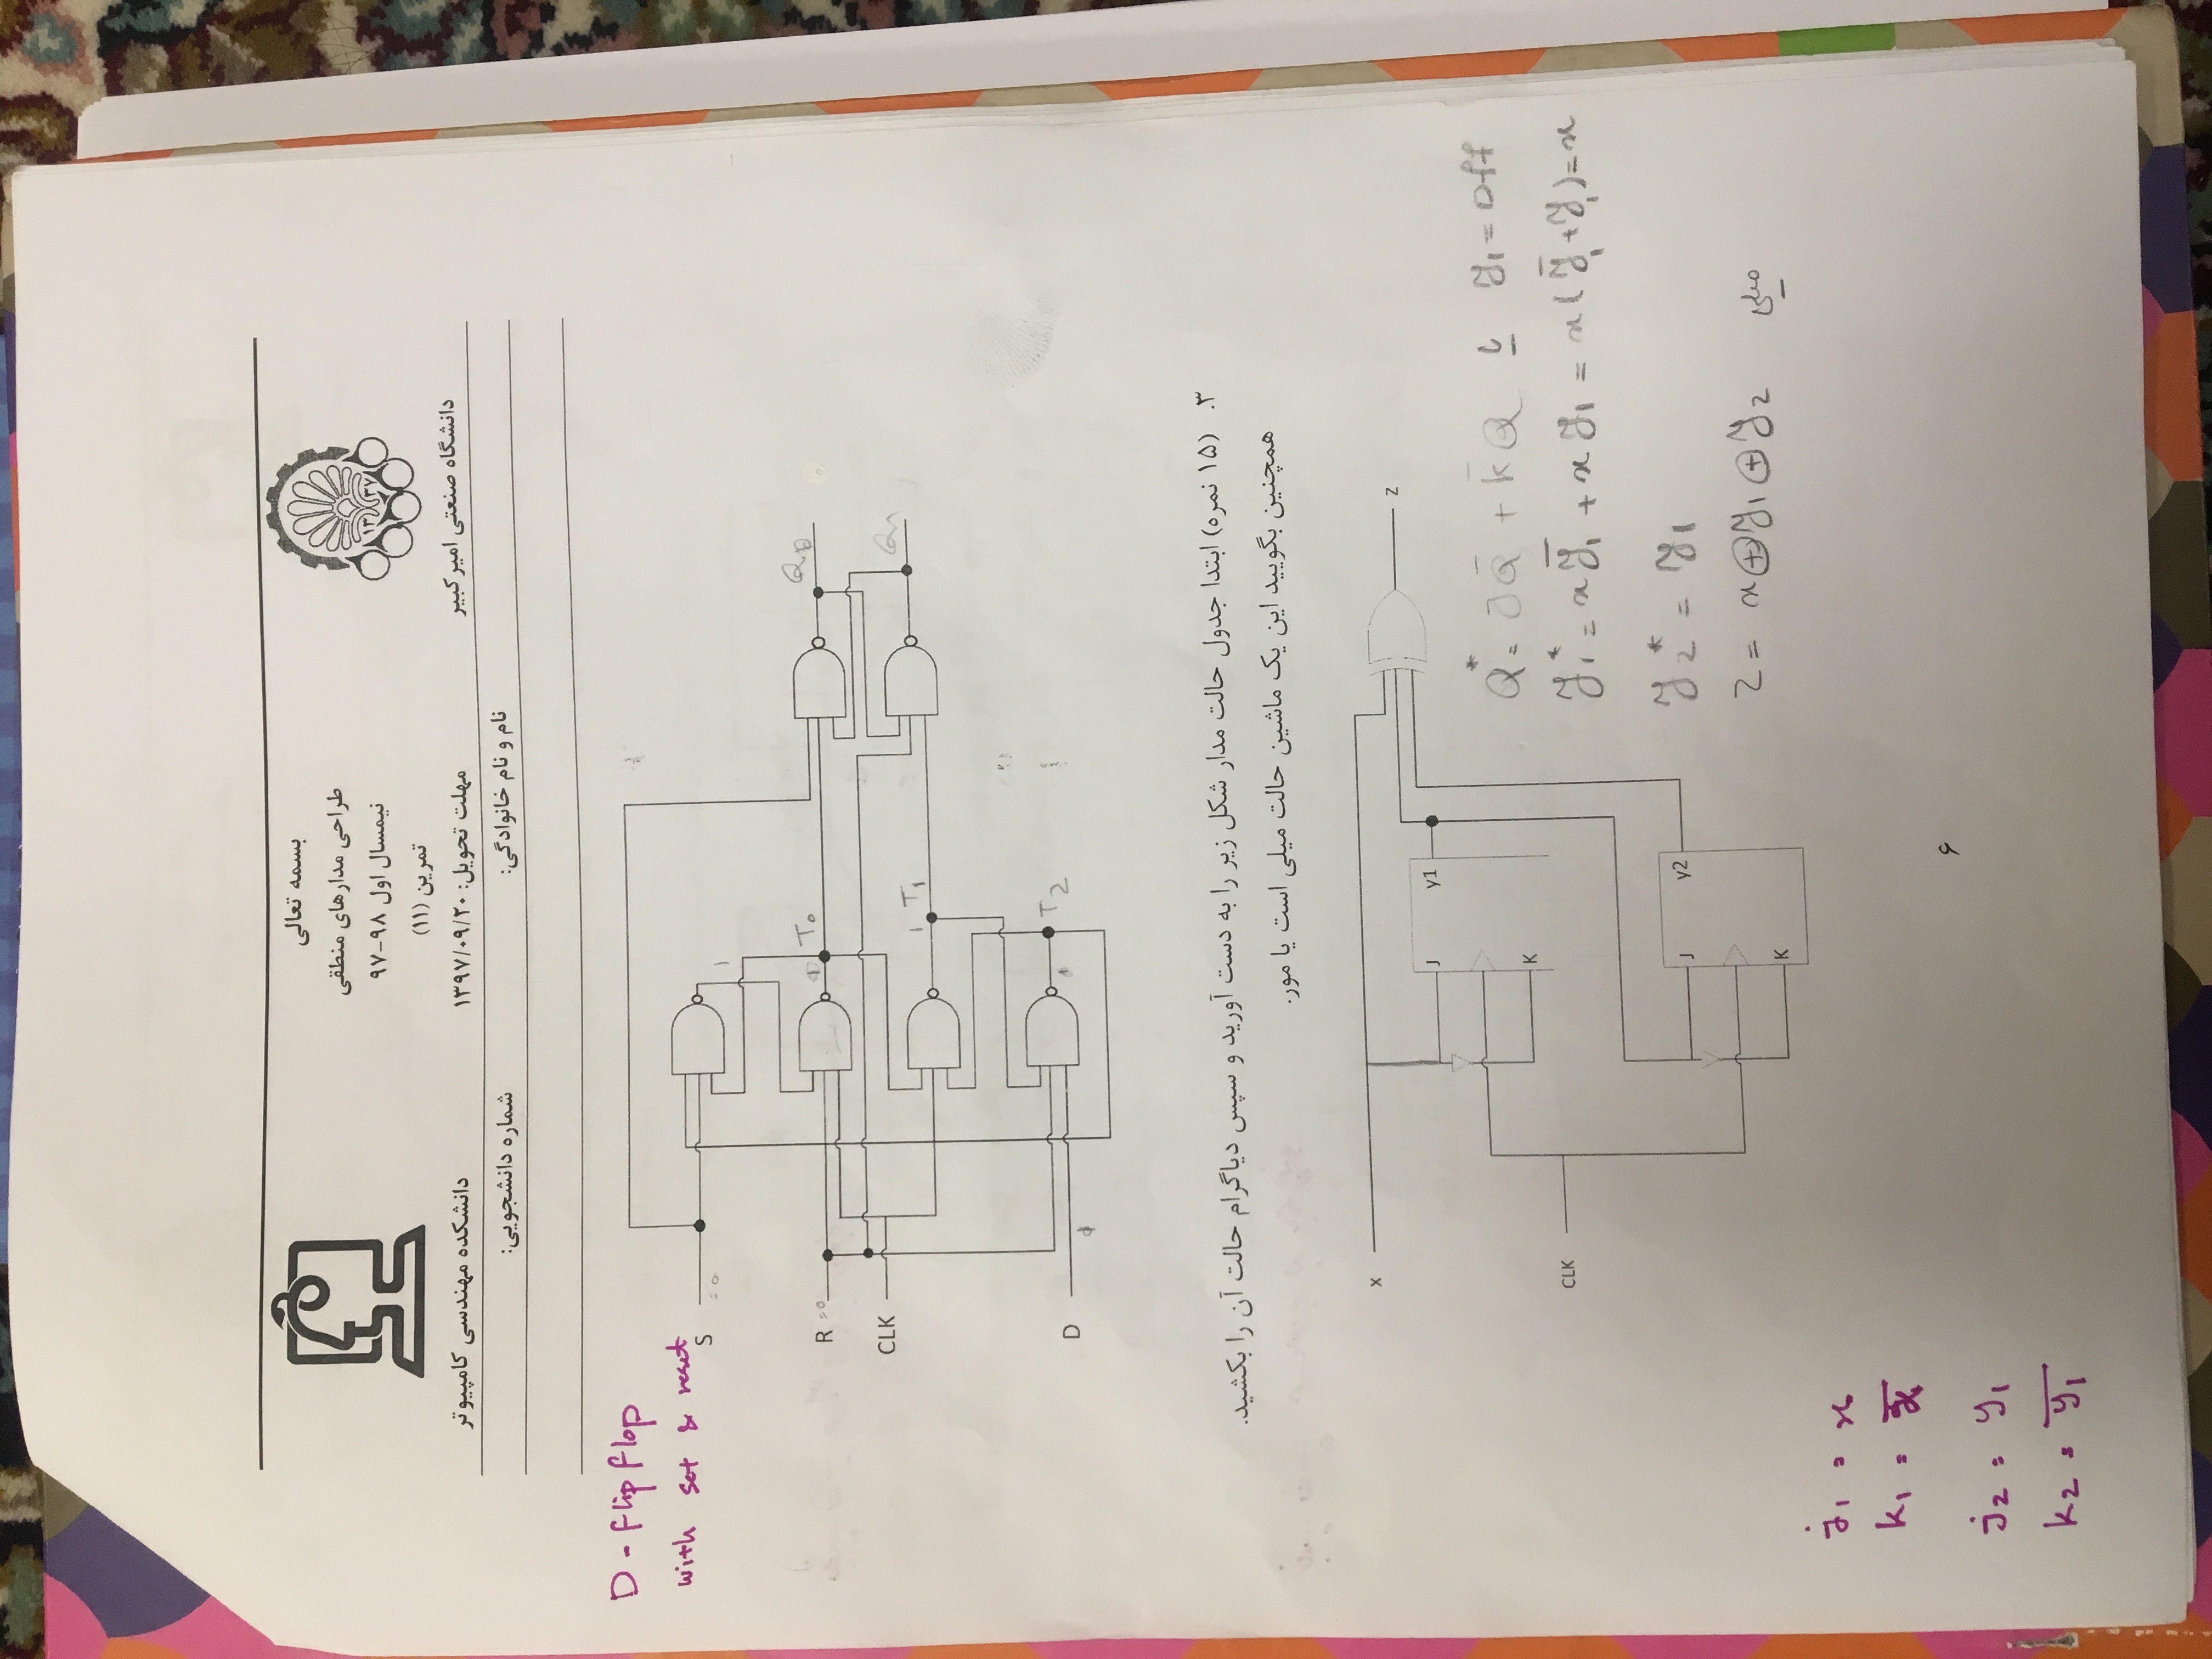 بسمه تعالی
طراحی مدارهای منطقی
نیمسال اول ۹۸-۹۷
تمرین (۱۱)
مهلت تحویل: ۱۳۹۷/۰۹/۲۰
۱۳ ۳۷
دانشگاه صنعتی امیرکبیر
دانشکده مهندسی کامپیوتر
نام و نام خانوادگی:
شماره دانشجویی:
D - flip flop
with set & reset
S
=0
1
R
=0
T₀
Q₀
CLK
1 T₁
Q₁
D
T₂
۳. (۱۵ نمره) ابتدا جدول حالت مدار شکل زیر را به دست آورید و سپس دیاگرام حالت آن را بکشید.
همچنین بگویید این یک ماشین حالت میلی است یا مور.
x
z
J
y1
K
CLK
J
y2
K
Q* = JQ̅ + K̅Q
y₁ = Dff
y₁* = x y̅₁ + x y₁ = x(y̅₁ + y₁) = x
y₂* = y₁
Z = x ⊕ y₁ ⊕ y₂ میلی
j₁ = x
k₁ = x̅
j₂ = y₁
k₂ = y̅₁
۶